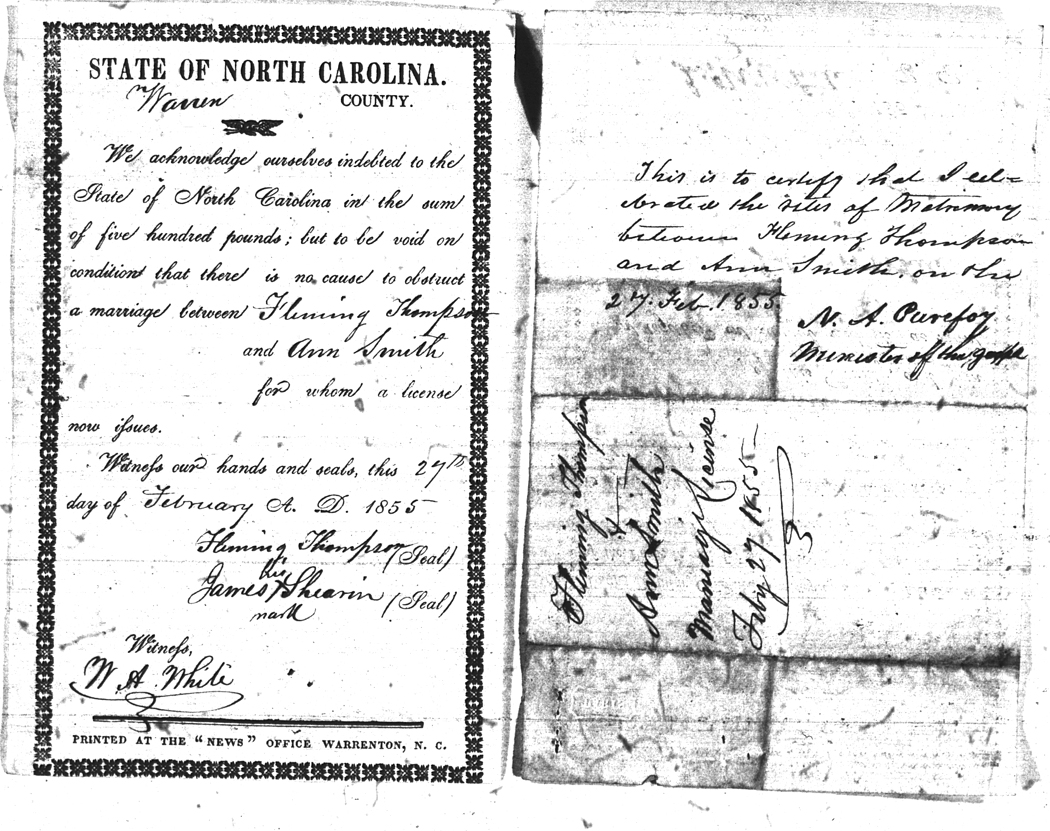 STATE OF NORTH CAROLINA.
Warren COUNTY.
We acknowledge ourselves indebted to the
State of North Carolina in the sum
of five hundred pounds; but to be void on
condition that there is no cause to obstruct
a marriage between Fleming Thompson
and Ann Smith
for whom a license
now issues.
Witness our hands and seals, this 27th
day of February A. D. 1855
Fleming Thompson (Seal)
his
James X Shearin (Seal)
mark
Witness,
W. A. White
PRINTED AT THE "NEWS" OFFICE WARRENTON, N. C.
This is to certify that I cel=
ebrated the rites of Matrimony
between Fleming Thompson
and Ann Smith. on the
27. Feb. 1855
N. A. Purefoy
Minister of the gospel
Fleming Thompson
to
Ann Smith
Marriage License
Feby 27 1855